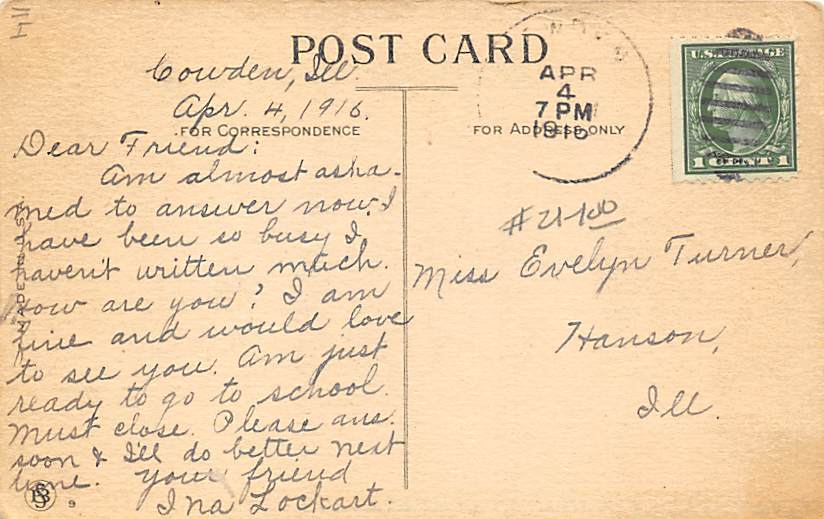 POST CARD
Cowden, Ill.
Apr. 4, 1916.
FOR CORRESPONDENCE
Dear Friend:
Am almost asha-
med to answer now. I
have been so busy I
haven't written much.
How are you? I am
fine and would love
to see you. Am just
ready to go to school.
Must close. Please ans.
soon & I'll do better next
time. Your friend
Ina Lockart.
9
APR
4
7 PM
1916
U.S. POSTAGE
1 CENT 1
FOR ADDRESS ONLY
Miss Evelyn Turner,
Hanson,
Ill.